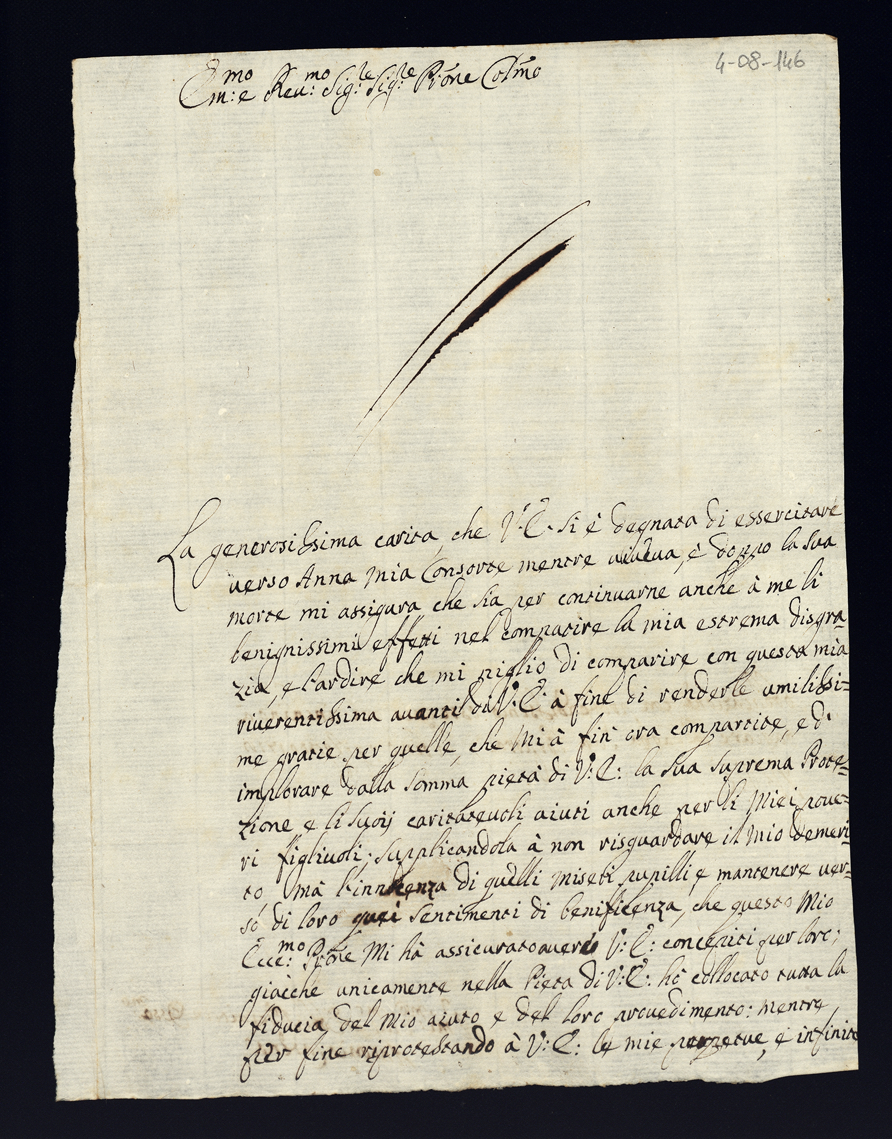 4-08-146
Em:mo e Reu:mo Sig:re Sig:re Prõne Colmõ
La generosissima carità, che V:E: si è degnata di essercitare
verso Anna mia Consorte mentre uiueua, e doppo la sua
morte mi assigura che sia per continuarne anche à me li
benignissimi effetti nel compatire la mia estrema disgra-
zia, e l'ardire che mi piglio di comparire con questa mia
riuerentissima auanti da V:E: à fine di renderle umilissi=
me gratie per quelle, che Mi à fin' ora compartite, e d'
implorare dalla somma pietà di V:E: la sua suprema Prote=
zione e li suoij caritateuoli aiuti anche per li Miei poue=
ri figliuoli; supplicandola à non risguardare il Mio demeri=
to mà l'innocenza di quelli miseri pupilli, e mantenere uer=
sò di loro quei sentimenti di benificenza, che questo Mio
Ecce:mo Prõne Mi hà assicurato auere V:E: concepiti per loro;
giacche unicamente nella Pietà di V:E: hò collocato tutta la
fiducia del Mio aiuto e del loro prouedimento: mentre
per fine riprotestando à V:E: le mie perpetue, e infinite